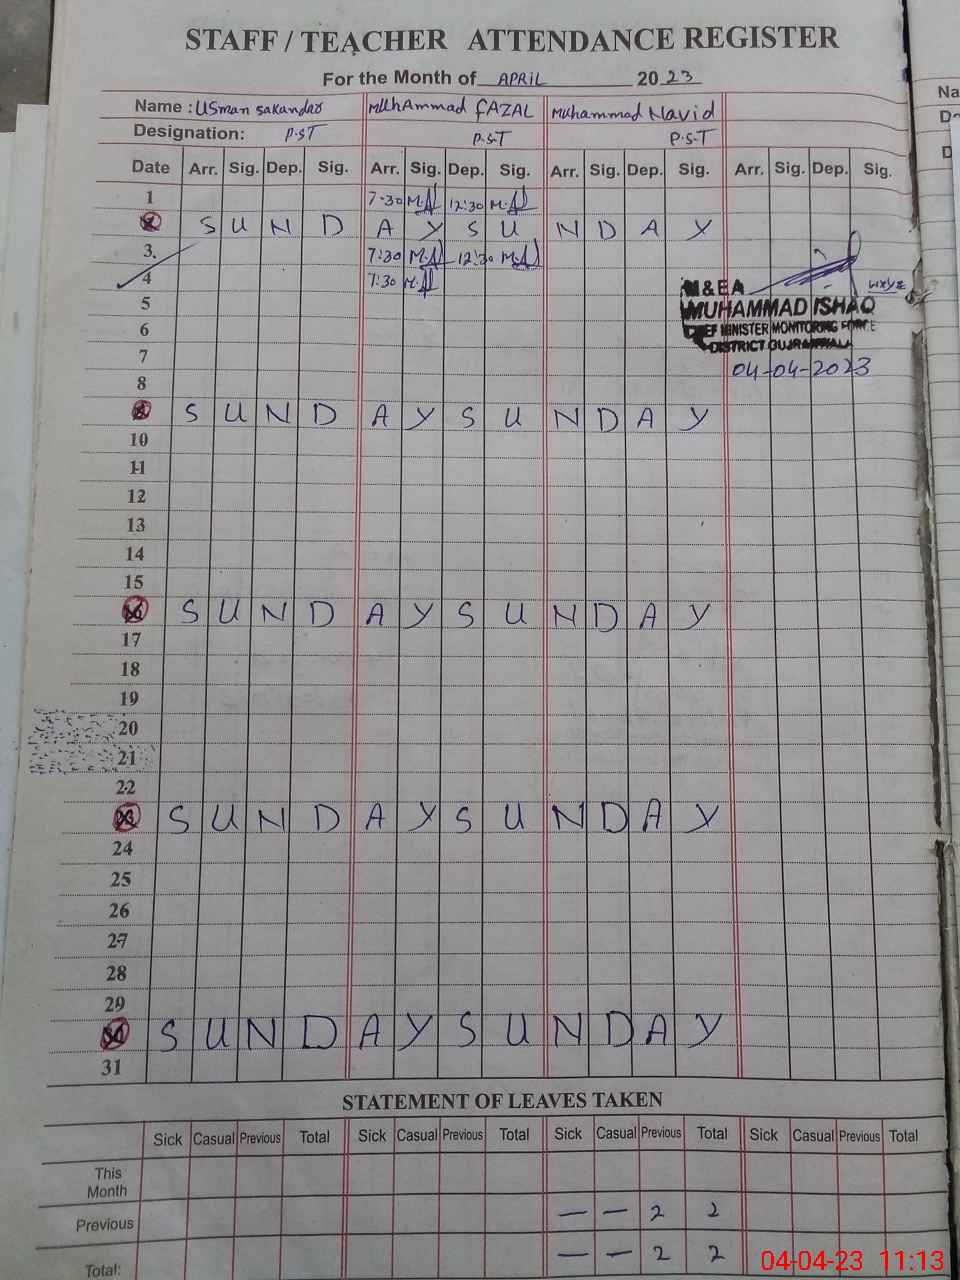 STAFF / TEACHER ATTENDANCE REGISTER
For the Month of APRIL 2023
Name : Usman Sakandar Muhammad FAZAL Muhammad Navid Na
Designation: P.S.T P.S.T P.S.T
Date Arr. Sig. Dep. Sig. Arr. Sig. Dep. Sig. Arr. Sig. Dep. Sig. Arr. Sig. Dep. Sig.
1 7:30 12:30
S U N D A Y S U N D A Y
3. 7:30 12:30
4 7:30
M & E A
5
MUHAMMAD ISHAQ
6 CHIEF MINISTER MONITORING FORCE
7 DISTRICT GUJRANWALA
04-04-2023
8
S U N D A Y S U N D A Y
10
11
12
13
14
15
16 S U N D A Y S U N D A Y
17
18
19
20
21
22
23 S U N D A Y S U N D A Y
24
25
26
27
28
29
S U N D A Y S U N D A Y
31
STATEMENT OF LEAVES TAKEN
Sick Casual Previous Total Sick Casual Previous Total Sick Casual Previous Total Sick Casual Previous Total
This
Month
Previous — — 2 2
Total: — — 2 2
04-04-23 11:13